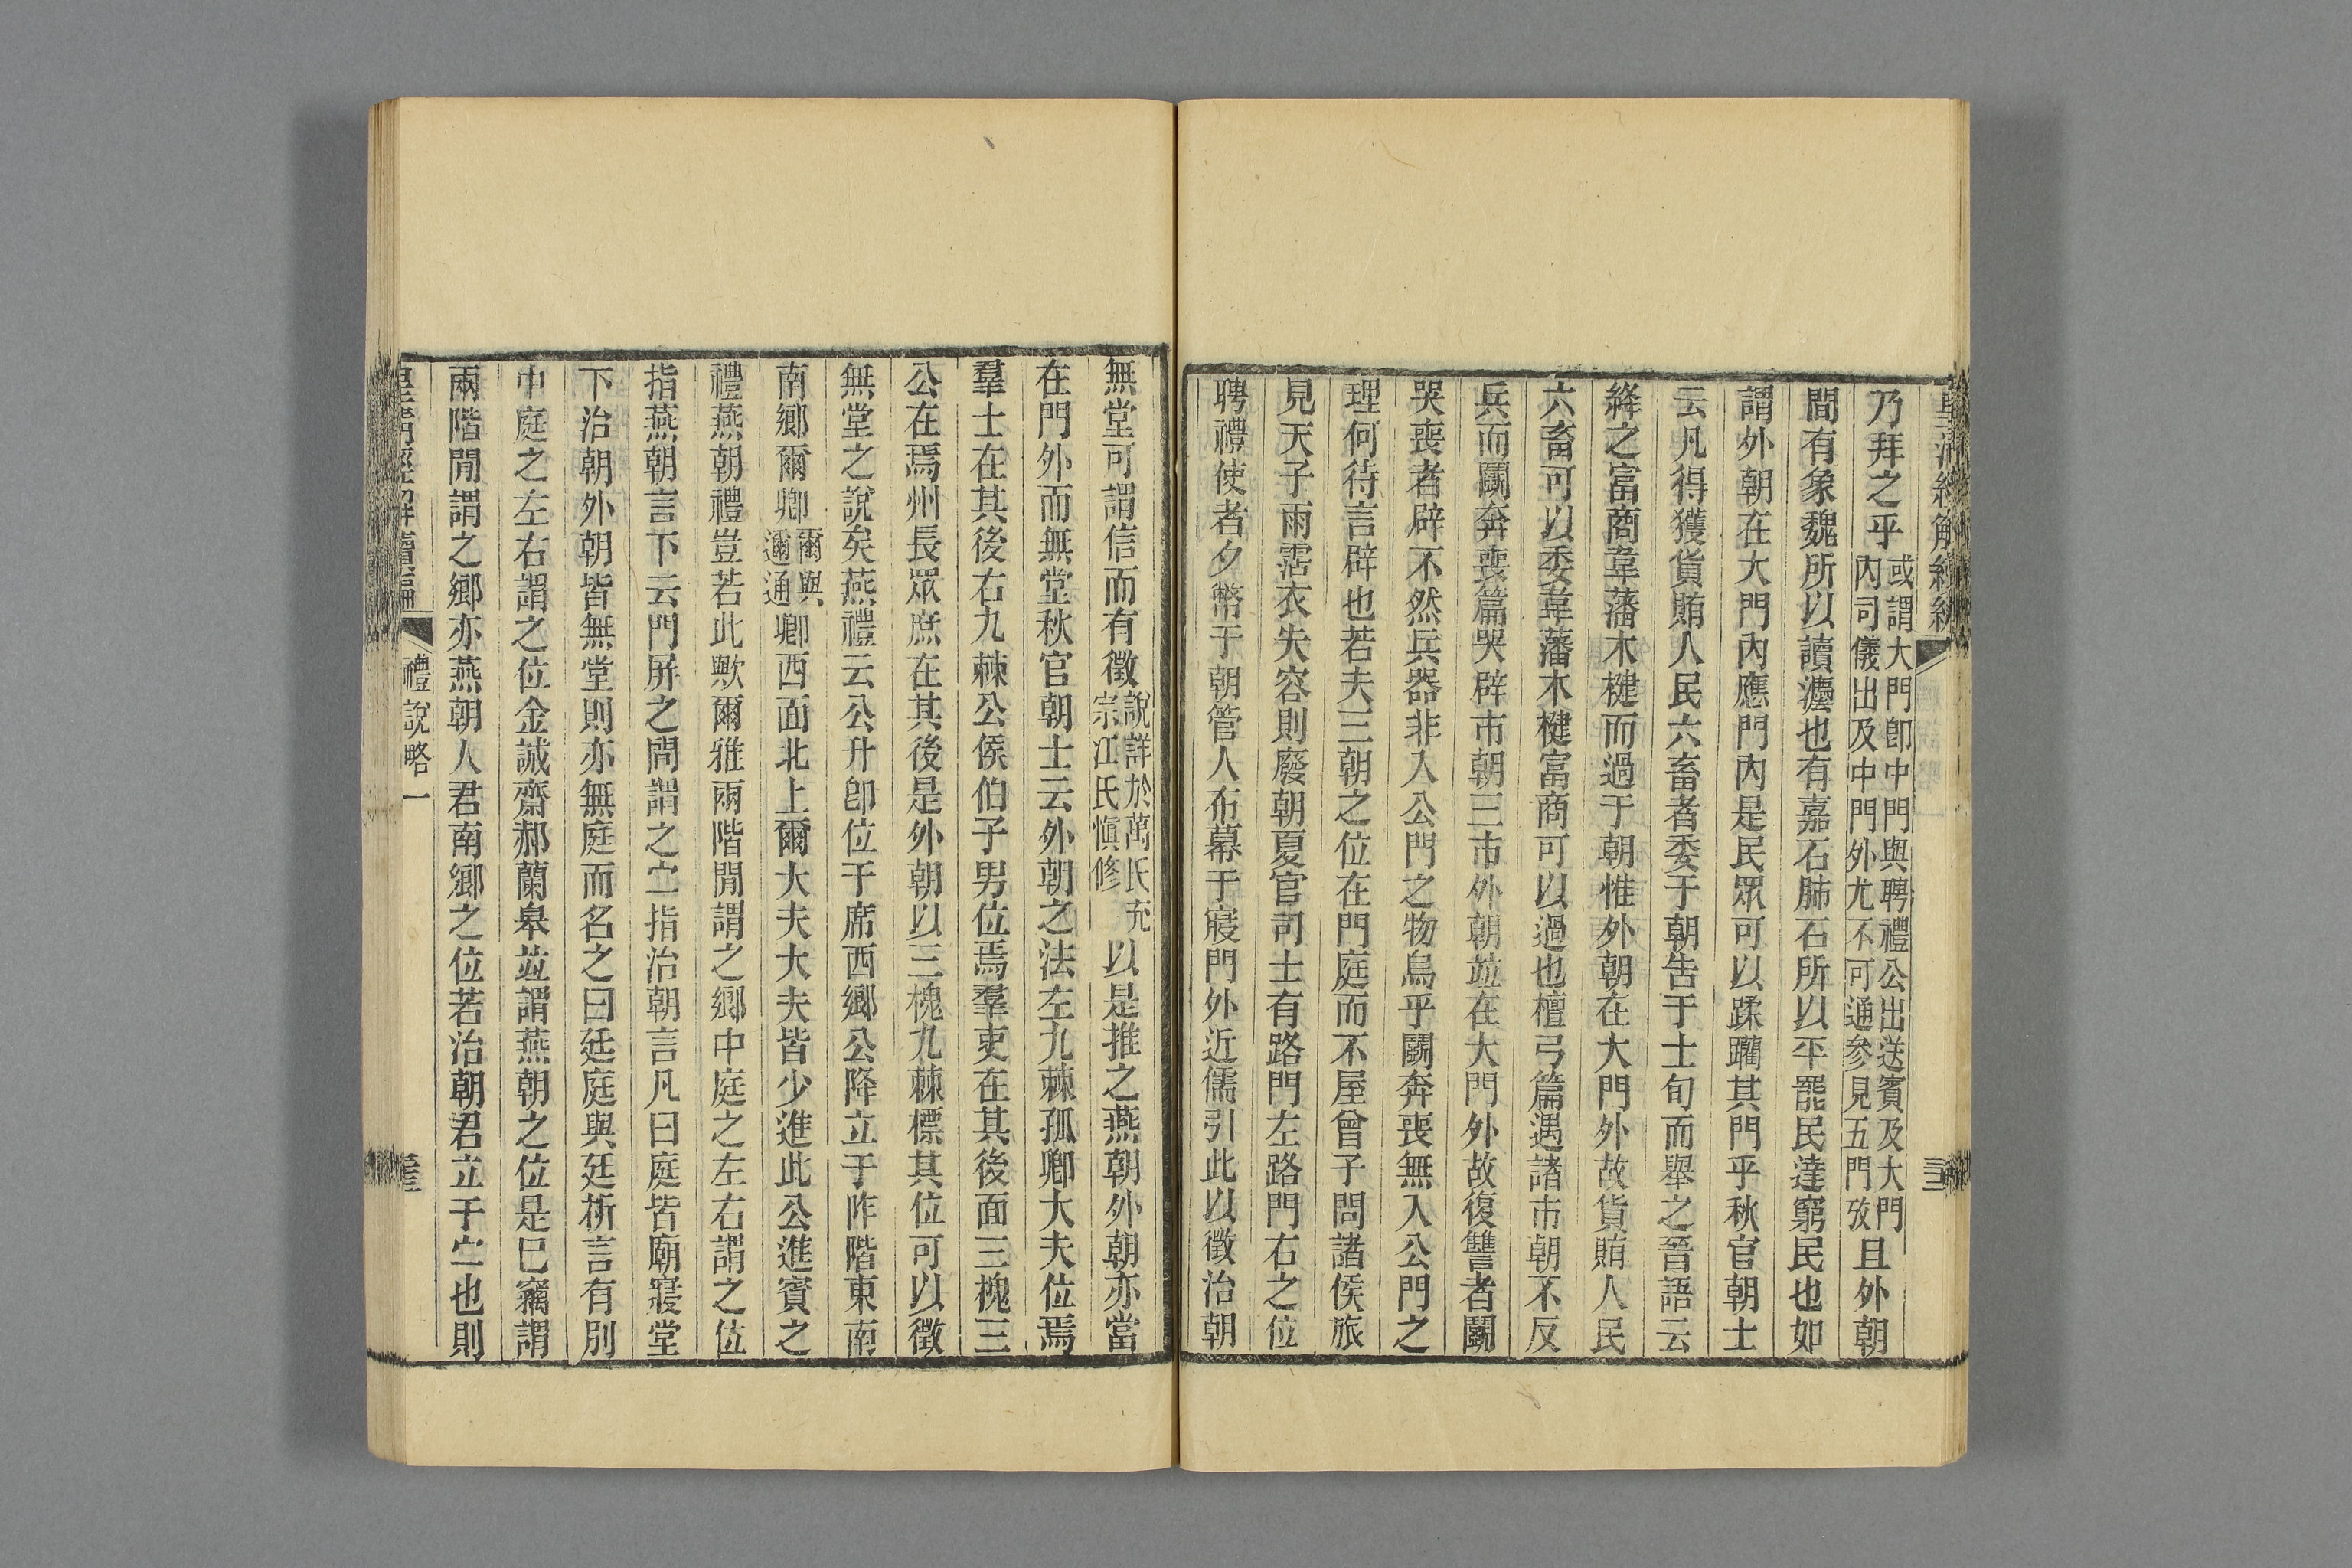 乃拜之乎或謂大門卽中門與聘禮公出送賓及大門內司儀出及中門外尤不可通參見五門攷且外朝
間有象魏所以讀灋也有嘉石肺石所以平罷民達窮民也如
謂外朝在大門內應門內是民眾可以蹂躪其門乎秋官朝士
云凡得獲貨賄人民六畜者委于朝告于士旬而舉之晉語云
絳之富商韋藩木楗而過于朝惟外朝在大門外故貨賄人民
六畜可以委韋藩木楗富商可以過也檀弓篇遇諸市朝不反
兵而鬭奔喪篇哭辟市朝三市外朝竝在大門外故復讐者鬭
哭喪者辟不然兵器非入公門之物烏乎鬭奔喪無入公門之
理何待言辟也若夫三朝之位在門庭而不屋曾子問諸侯旅
見天子雨霑衣失容則廢朝夏官司士有路門左路門右之位
聘禮使者夕幣于朝管人布幕于寢門外近儒引此以徵治朝
無堂可謂信而有徵說詳於萬氏充宗江氏愼修以是推之燕朝外朝亦當
在門外而無堂秋官朝士云外朝之法左九棘孤卿大夫位焉
羣士在其後右九棘公侯伯子男位焉羣吏在其後面三槐三
公在焉州長眾庶在其後是外朝以三槐九棘標其位可以徵
無堂之說矣燕禮云公升卽位于席西鄉公降立于阼階東南
南鄉爾卿爾與邇通卿西面北上爾大夫大夫皆少進此公進賓之
禮燕朝禮豈若此歟爾雅兩階閒謂之鄉中庭之左右謂之位
指燕朝言下云門屏之閒謂之宁指治朝言凡曰庭皆廟寢堂
下治朝外朝皆無堂則亦無庭而名之曰廷庭與廷析言有別
中庭之左右謂之位金誠齋郝蘭皋竝謂燕朝之位是已竊謂
兩階閒謂之鄉亦燕朝人君南鄉之位若治朝君立于宁也則
皇淸經解續編 禮說略一